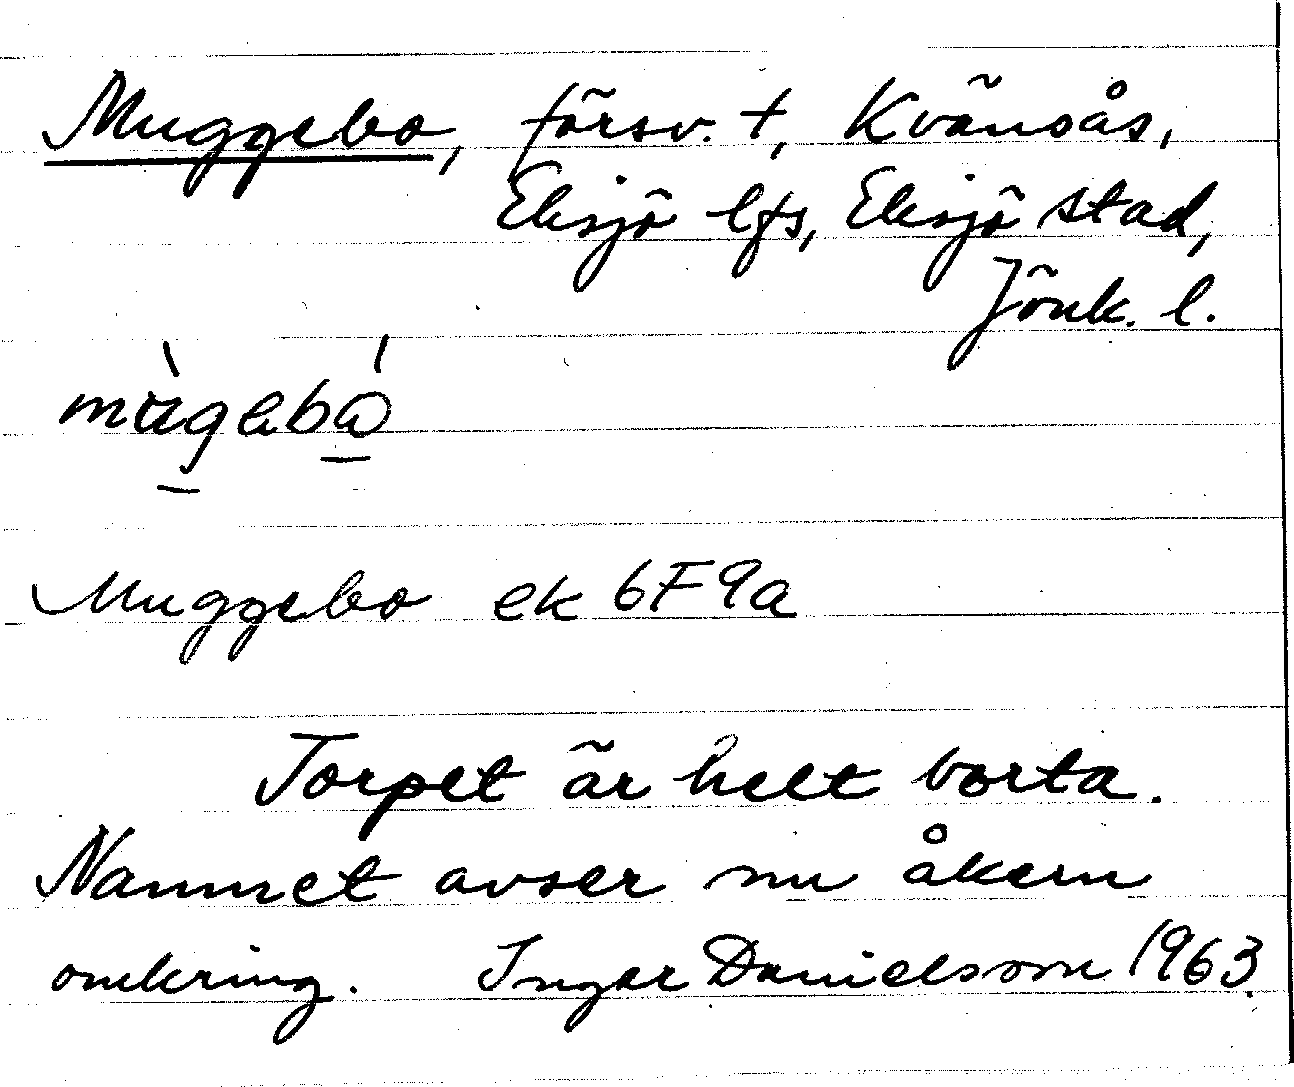 Muggebo, försv. t, Kvänsås,
Eksjö lfs, Eksjö stad,
Jönk. l.
Muggebo ek 6F9a
Torpet är helt borta.
Namnet avser nu åkern
omkring. Ingar Danielsson 1963.